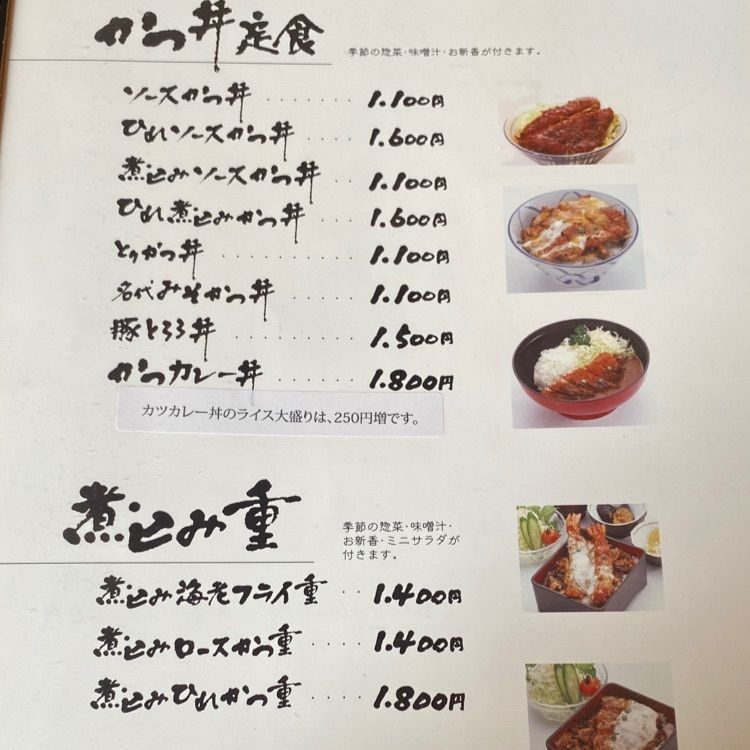 かつ丼定食
季節の惣菜・味噌汁・お新香が付きます。
ソースかつ丼 ········ 1.100円
ひれソースかつ丼 ····· 1.600円
煮込みソースかつ丼 ···· 1.100円
ひれ煮込みかつ丼 ····· 1.600円
とりかつ丼 ·········· 1.100円
名代みそかつ丼 ······· 1.100円
豚とろろ丼 ·········· 1.500円
かつカレー丼 ········ 1.800円
カツカレー丼のライス大盛りは、250円増です。
煮込み重
季節の惣菜・味噌汁・
お新香・ミニサラダが
付きます。
煮込み海老フライ重 ·· 1.400円
煮込みロースかつ重 ···· 1.400円
煮込みひれかつ重 ····· 1.800円